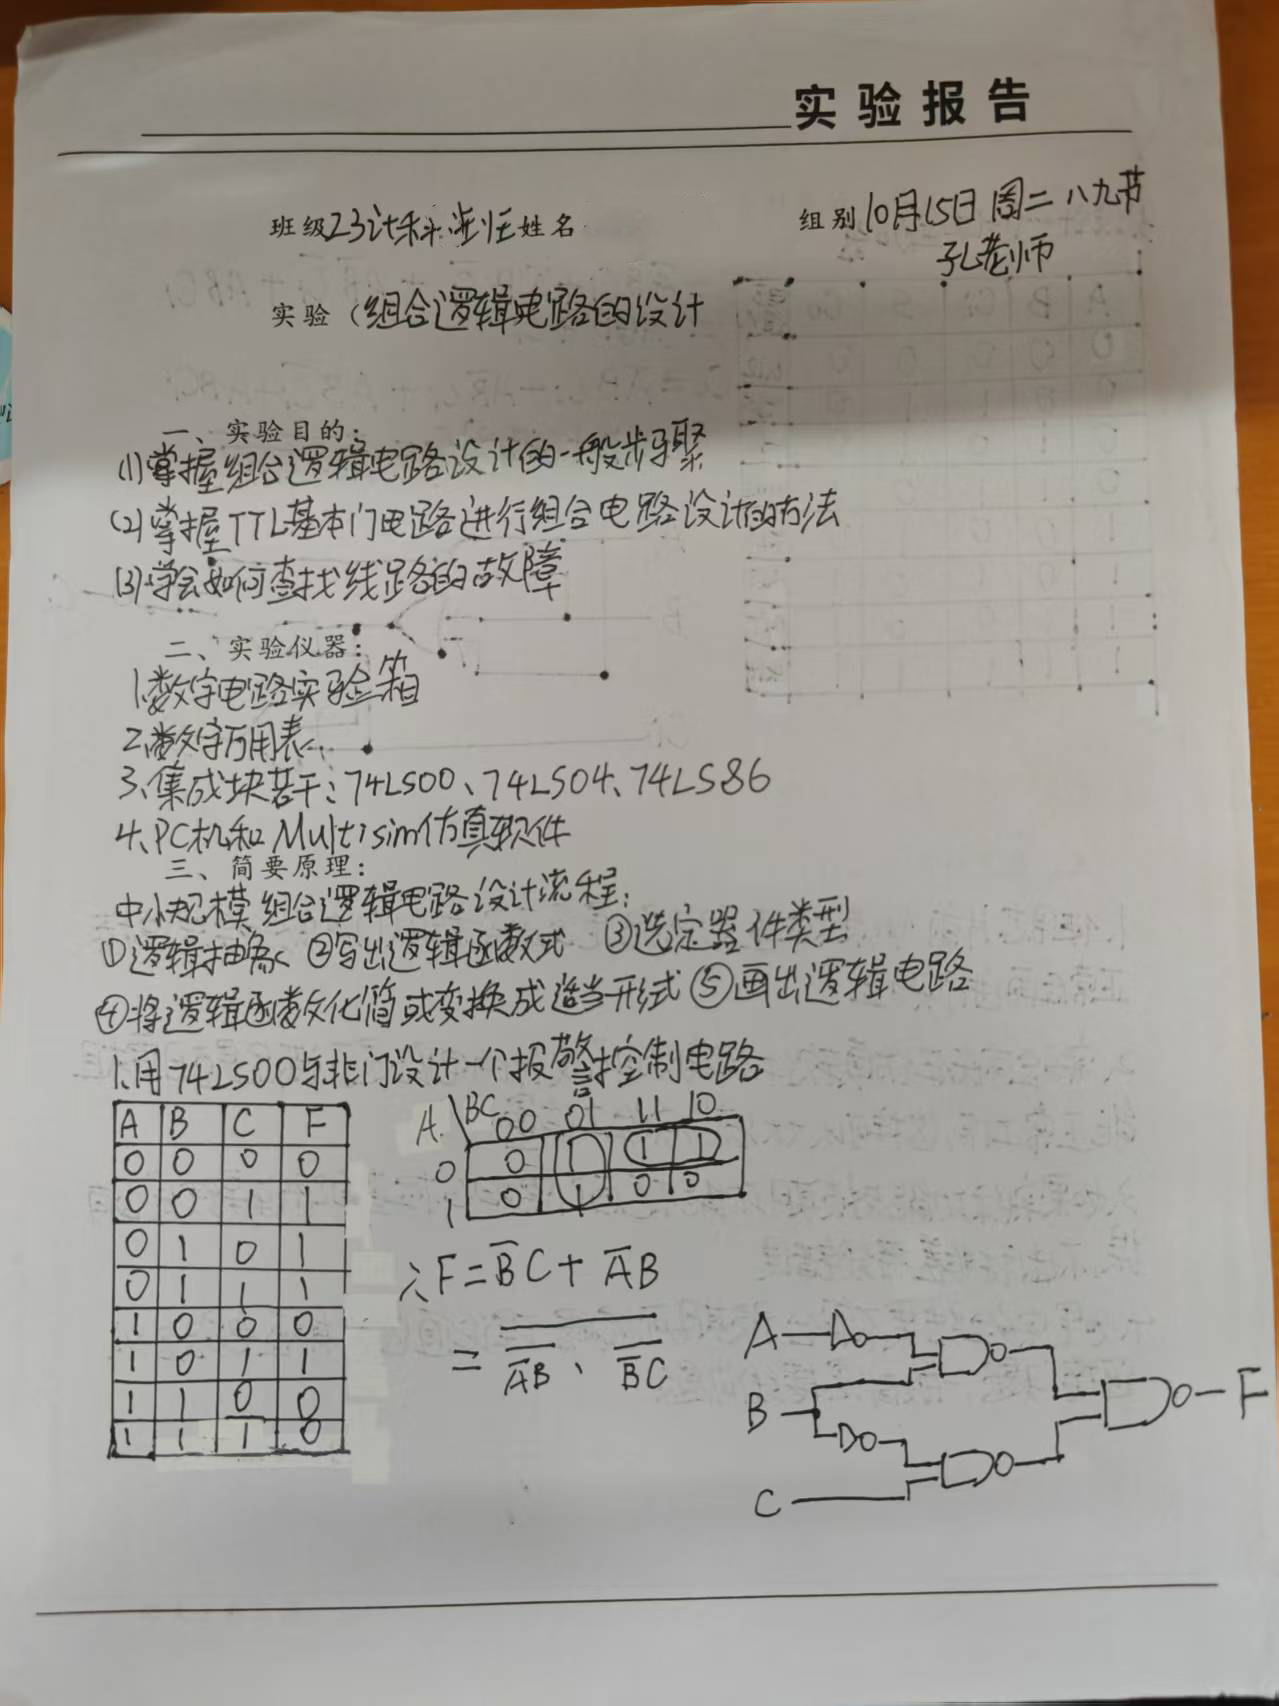 实验报告
班级23计科 姓名 组别10月15日 周二 八九节
孔老师
实验(组合逻辑电路的设计
一、实验目的:
(1)掌握组合逻辑电路设计的一般步骤
(2)掌握TTL基本门电路进行组合电路设计的方法
(3)学会如何查找线路的故障
二、实验仪器:
1.数字电路实验箱
2.数字万用表
3、集成块若干:74LS00、74LS04、74LS86
4、PC机和Multisim仿真软件
三、简要原理:
中小规模组合逻辑电路设计流程:
①逻辑抽象 ②写出逻辑函数式 ③选定器件类型
④将逻辑函数化简或变换成适当形式 ⑤画出逻辑电路
1.用74LS00与非门设计一个报警控制电路
A B C F
0 0 0 0
0 0 1 1
0 1 0 1
0 1 1 1
1 0 0 0
1 0 1 1
1 1 0 0
1 1 1 0
A\BC 00 01 11 10
0 0 1 1 1
1 0 1 0 0
∴F=B̅C+A̅B
= \overline{\overline{A̅B}·\overline{B̅C}}
A
B
C
F